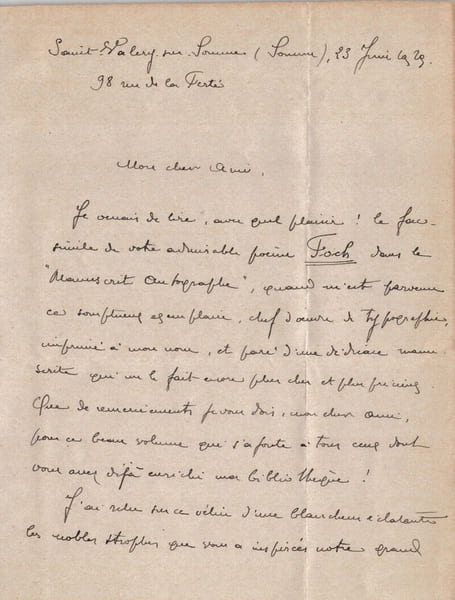 Saint-Valery-sur-Somme (Somme), 23 Juin 1929.
98 rue de la Ferté
Mon cher Ami,
Je venais de lire, avec quel plaisir ! le fac-
similé de votre admirable poème Foch dans le
"Manuscrit autographe", quand m'est parvenu
ce somptueux exemplaire, chef d'œuvre de typographie,
imprimé à mon nom, et paré d'une dédicace manu-
scrite qui me le fait encore plus cher et plus précieux.
Que de remerciements je vous dois, mon cher ami,
pour ce beau volume qui s'ajoute à tous ceux dont
vous avez déjà enrichi ma bibliothèque !
J'ai relu sur ce vélin d'une blancheur éclatante
les nobles strophes que vous a inspirées notre grand